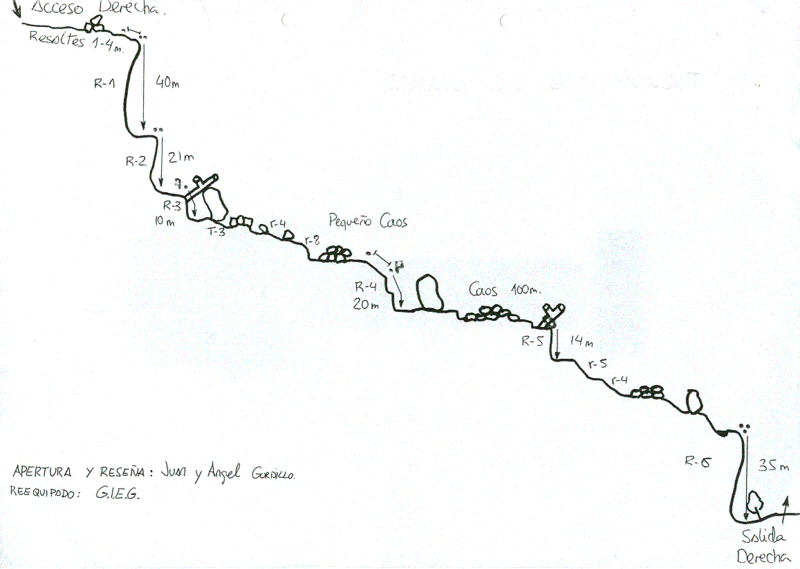 Acceso Derecha.
Resaltes 1-4 m.
R-1
40m
R-2
21m
R-3
10 m
T-3
r-4
r-8
Pequeño Caos
R-4
20m
Caos 100m.
R-5
14m
r-5
r-4
R-6
35m
APERTURA Y RESEÑA: Juan y Ángel GORDILLO.
REEQUIPADO: G.I.E.G.
Salida
Derecha